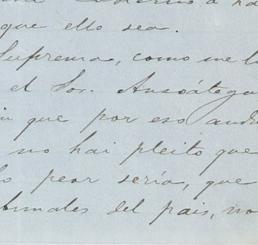 que ello sea.
Suprema, como me
el Sor. Ansoátegui
que por eso
no hai pleito que
peor sería, que
bunales del pais, no